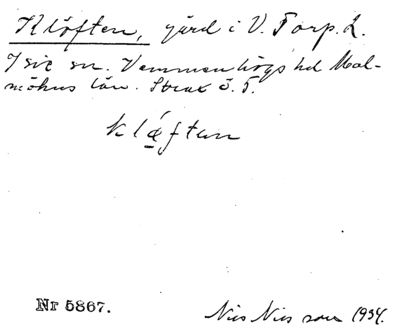 Klöften, gård i V. Torp. L.
sn. Vemmenhögs hd Mal-
möhus län. Strax ö. T.
kläftan
Nr 5867.
Nils Nilsson 1934.